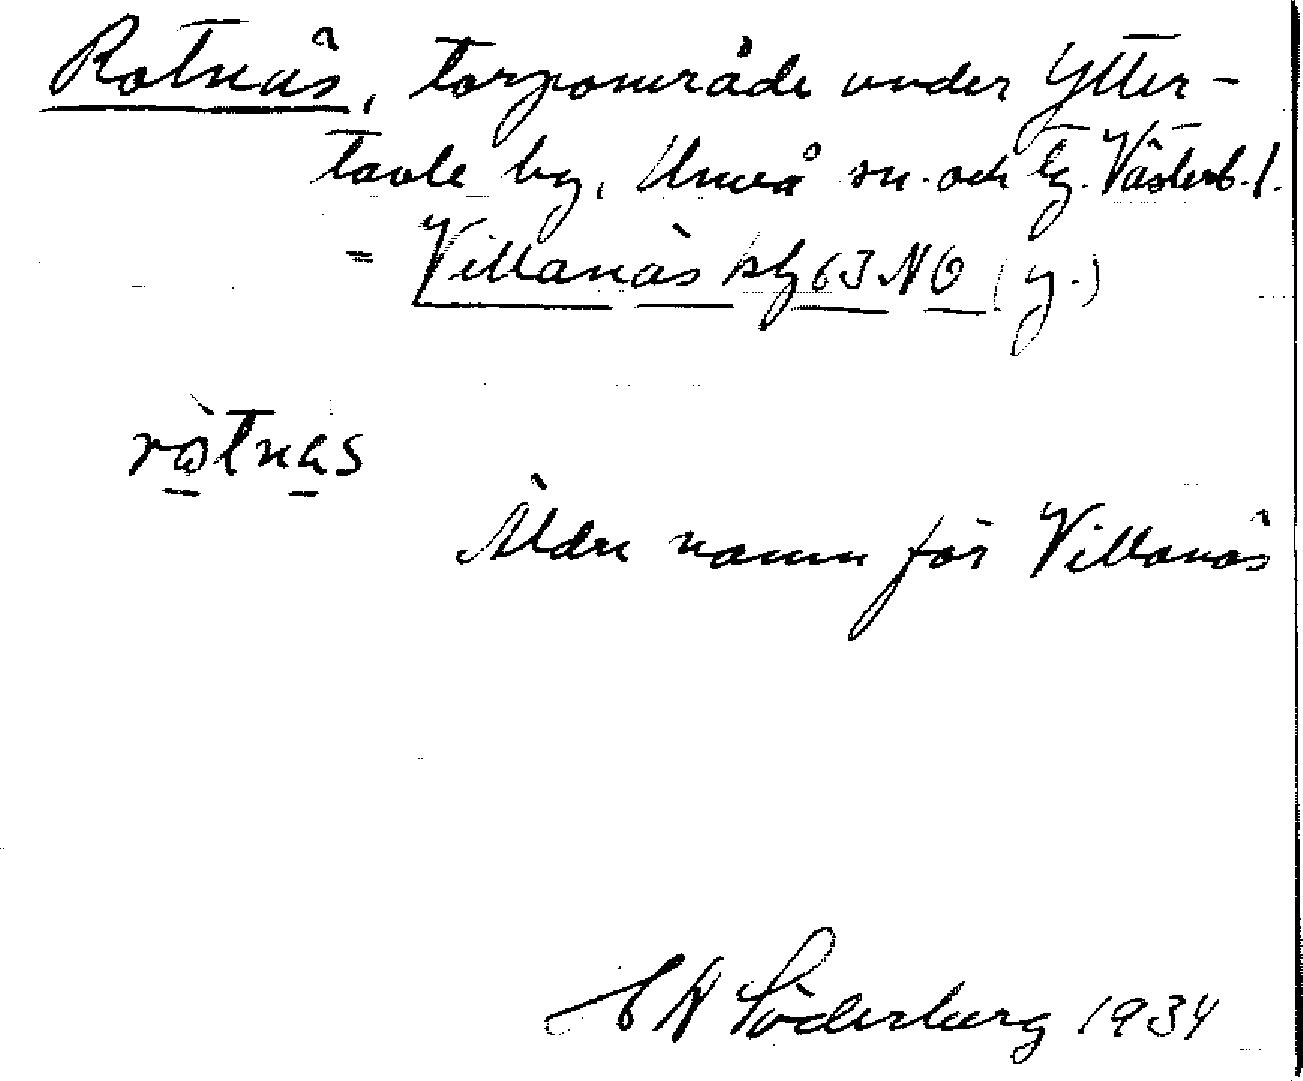 Rotnäs, torpområde under Ytter-
tavle by, Umeå sn. och tg. Västerb. l.
= Villanäs kbl 63 NO (y.)
ròtnas
Äldre namn för Villanäs
E A Söderberg 1934